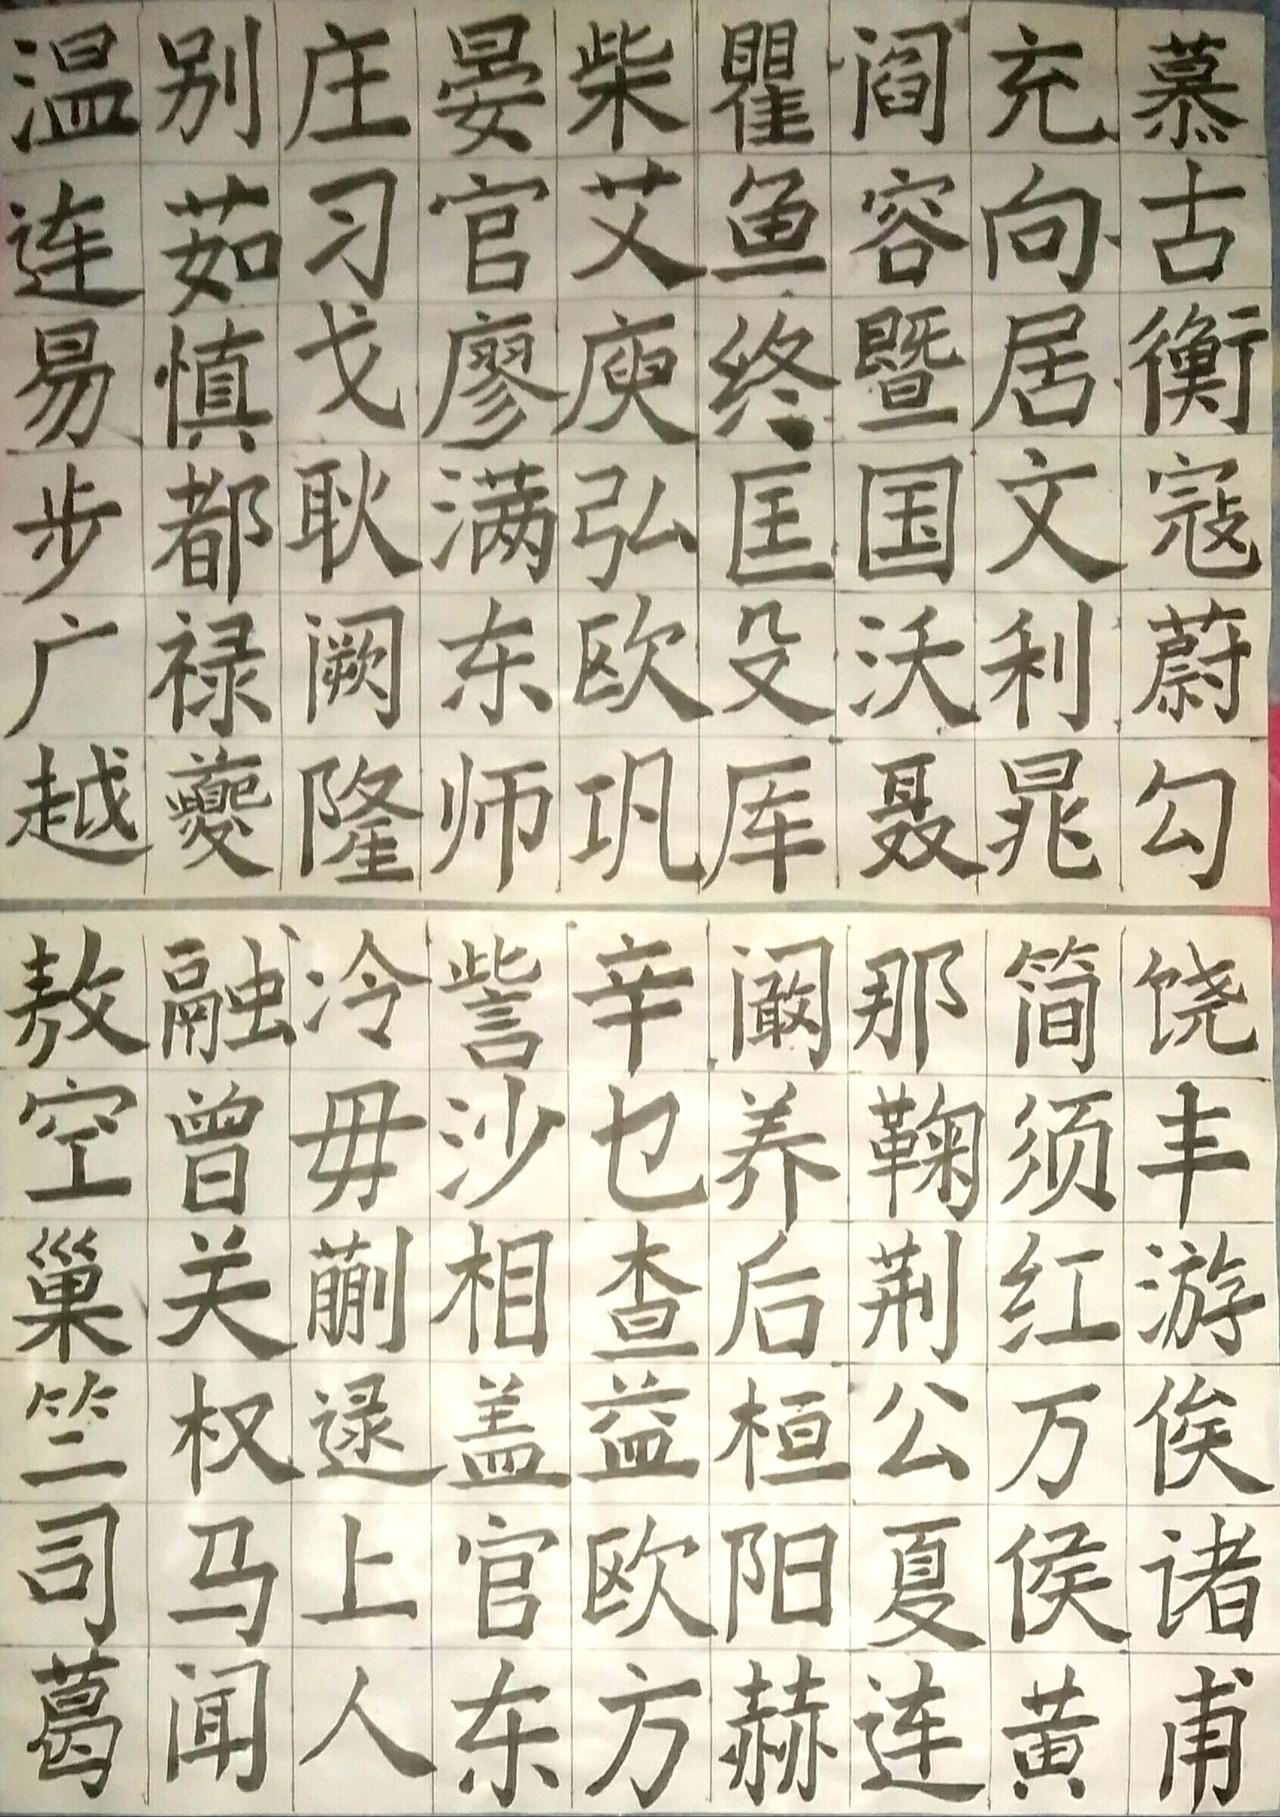 温别庄晏柴瞿阎充慕
连茹习官艾鱼容向古
易慎戈廖庾终暨居衡
步都耿满弘匡国文寇
广禄阙东欧殳沃利蔚
越夔隆师巩厍聂晁勾
敖融冷訾辛阚那简饶
空曾毋沙乜养鞠须丰
巢关蒯相查后荆红游
竺权逯盖益桓公万俟
司马上官欧阳夏侯诸
葛闻人东方赫连黄甫